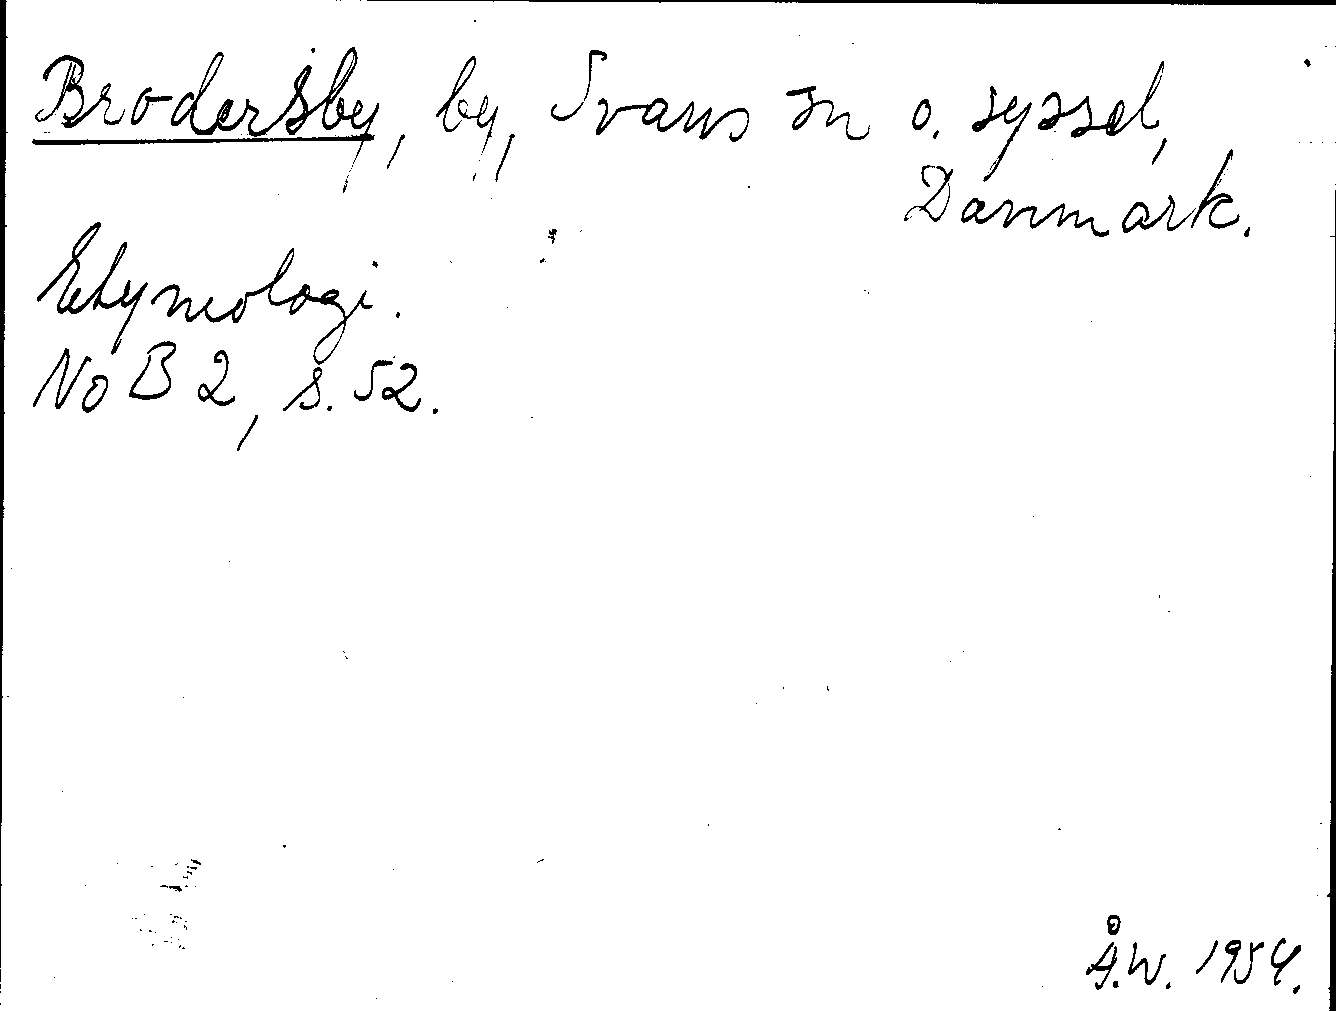 Brodersby, by, Svans sn o. syssel,
Danmark.
Etymologi.
NoB 2, s. 52.
Å.W. 1954.